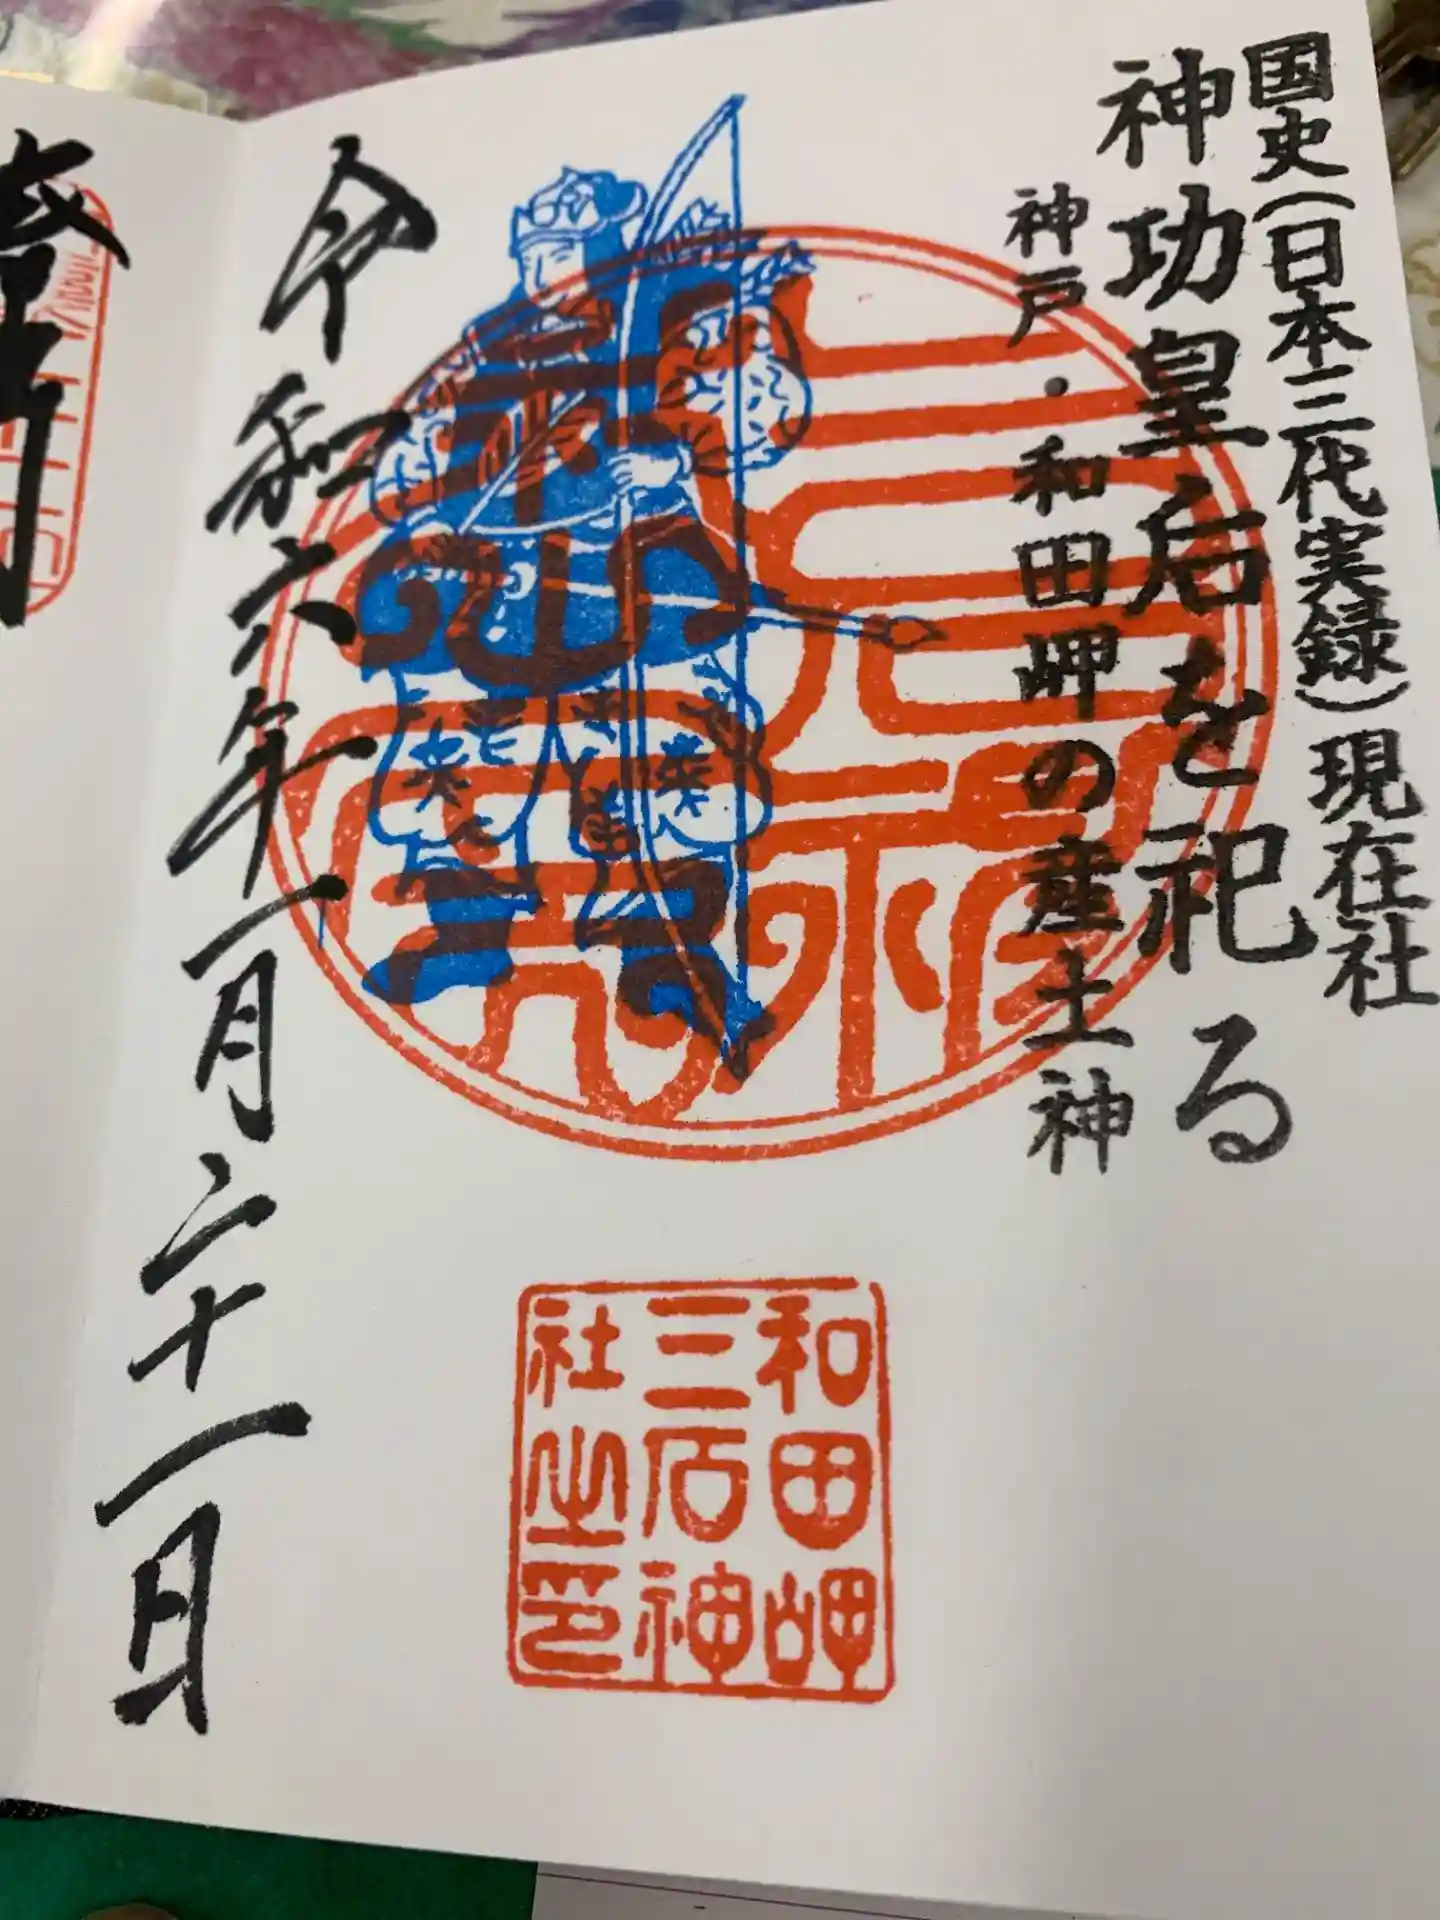 国史(日本三代実録)現在社
神功皇后を祀る
神戸・和田岬の産土神
令和六年一月二十一日
和田岬
三石神
社之印